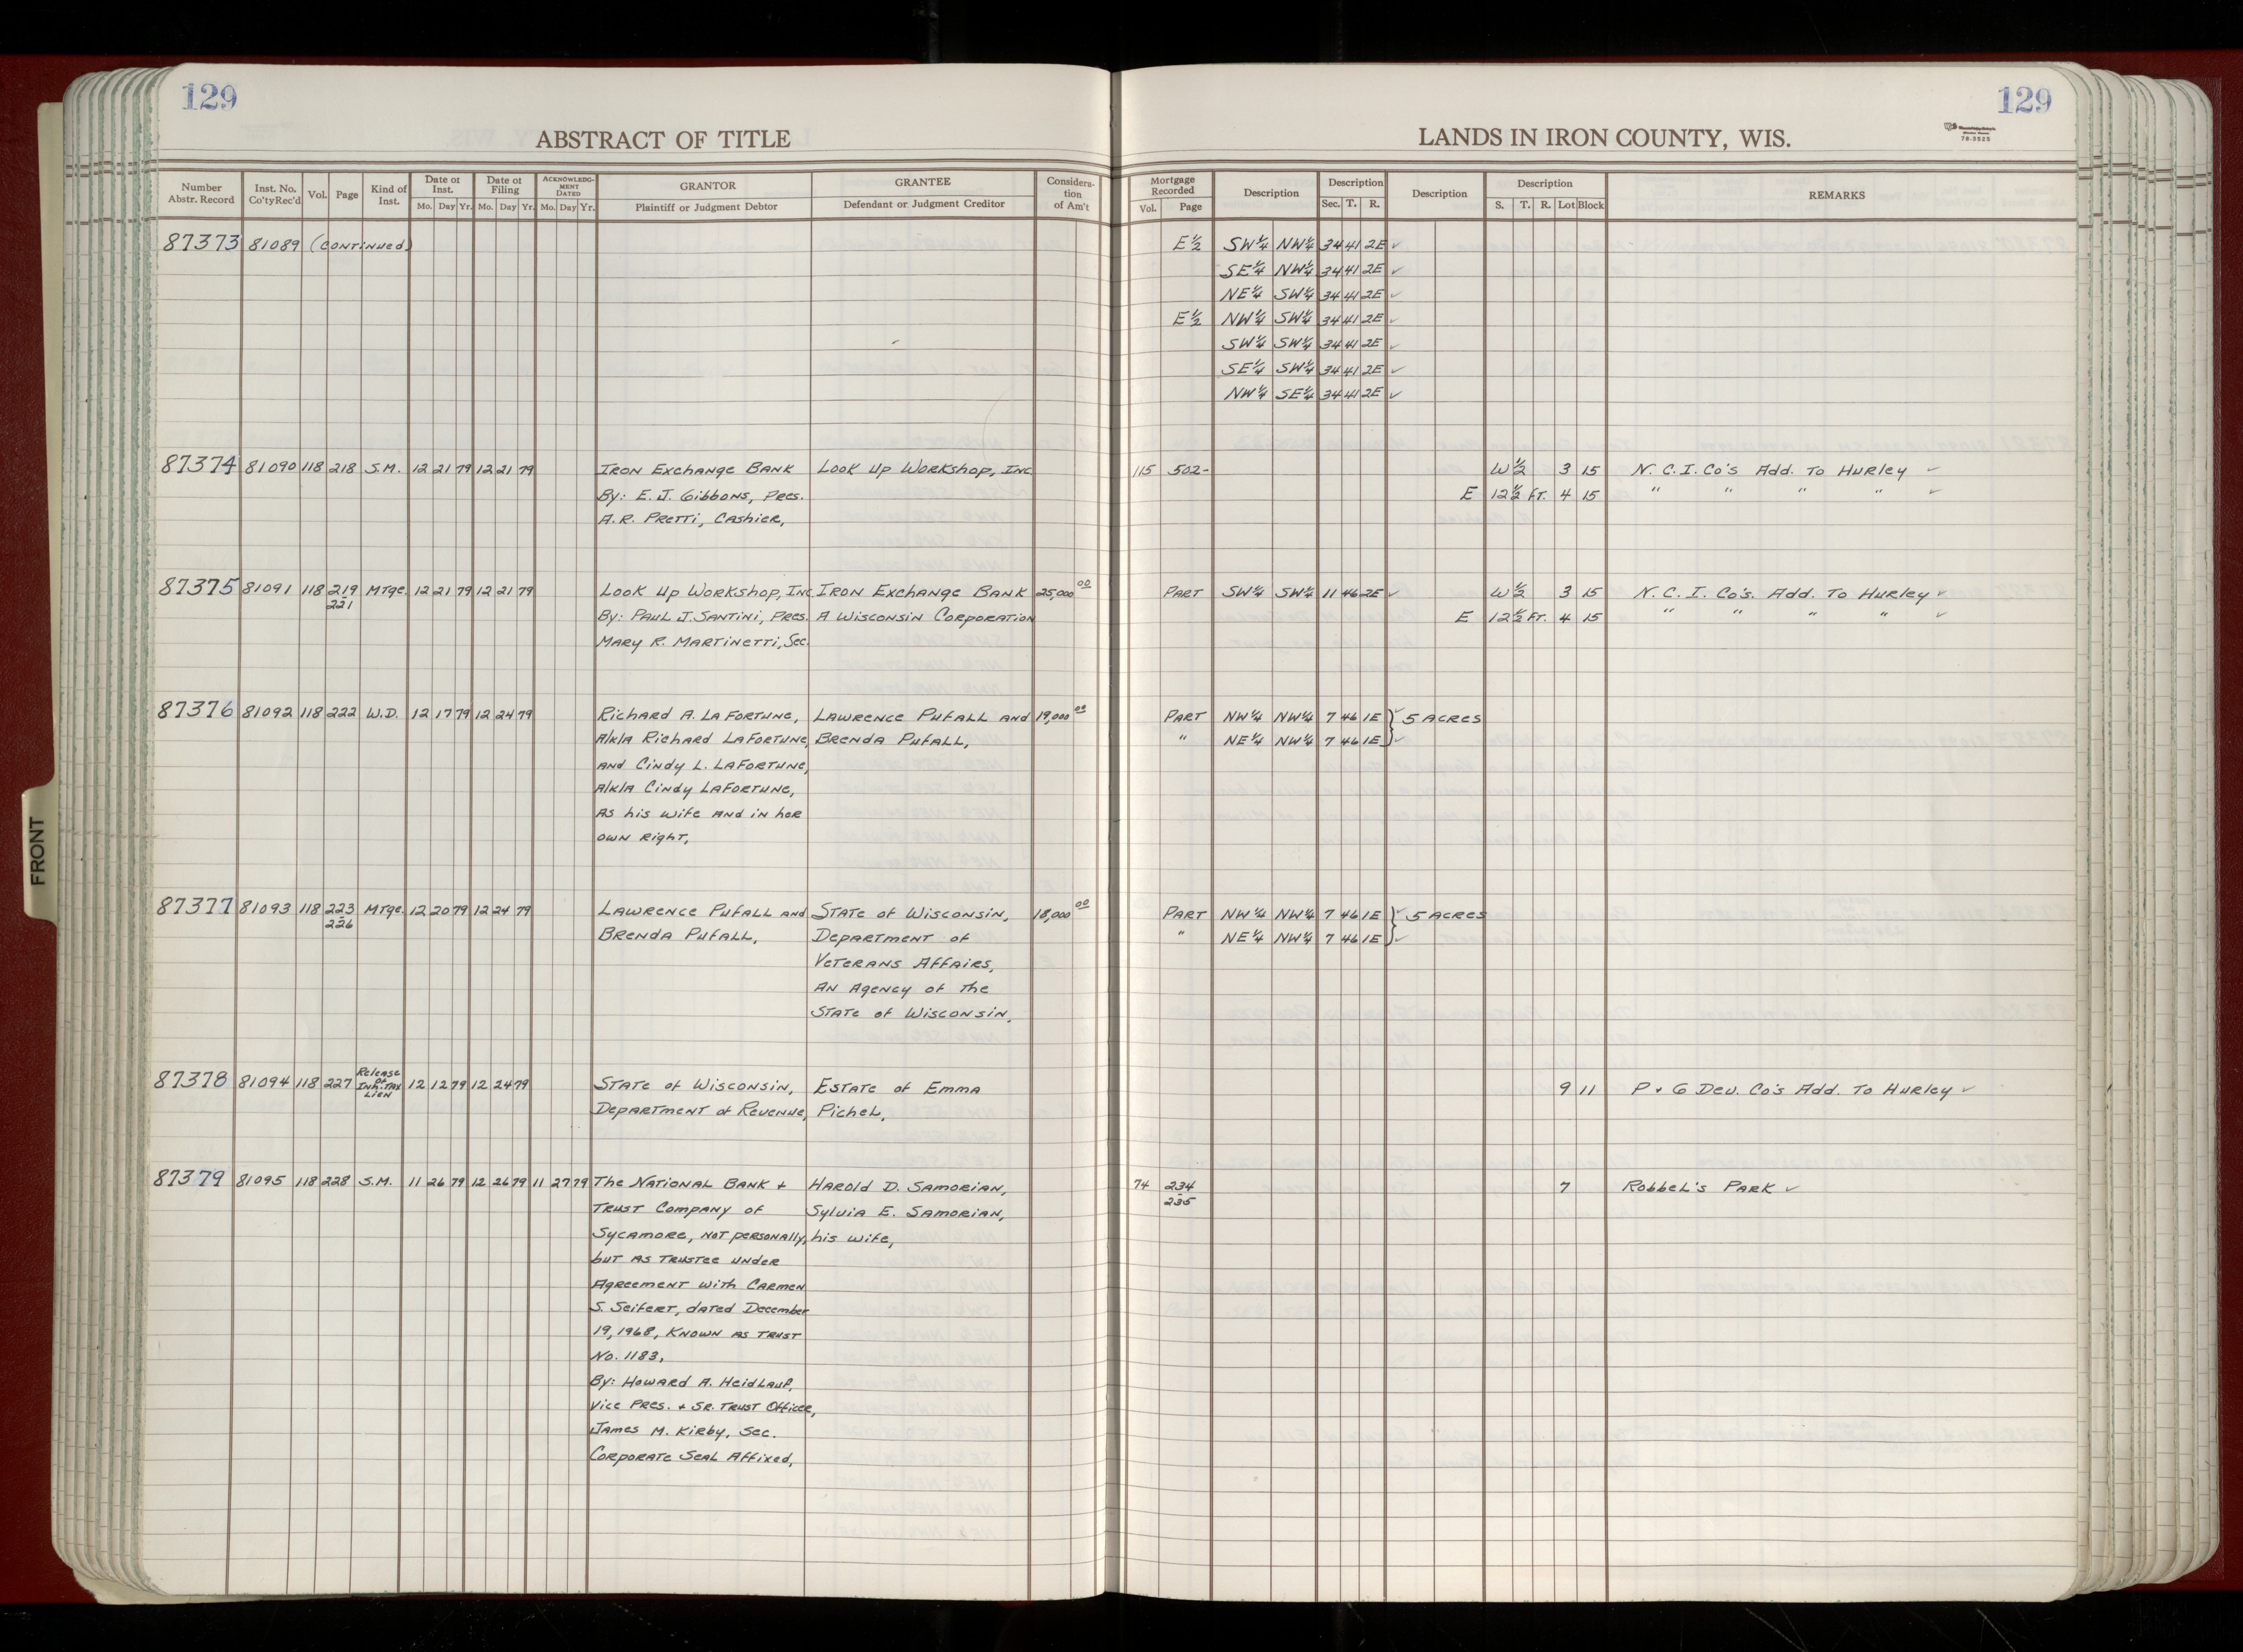 129
129
ABSTRACT OF TITLE
LANDS IN IRON COUNTY, WIS.
78-3525
Number Abstr. Record
Inst. No. Co'ty Rec'd
Vol.
Page
Kind of Inst.
Date of Inst. Mo. Day Yr.
Date of Filing Mo. Day Yr.
ACKNOWLEDGMENT DATED Mo. Day Yr.
GRANTOR Plaintiff or Judgment Debtor
GRANTEE Defendant or Judgment Creditor
Consideration of Am't
Mortgage Recorded Vol. Page
Description
Description Sec. T. R.
Description
Description S. T. R. Lot Block
REMARKS
87373 81089 (continued) E½ SW¼ NW¼ 34 41 2E ✓
SE¼ NW¼ 34 41 2E ✓
NE¼ SW¼ 34 41 2E ✓
E½ NW¼ SW¼ 34 41 2E ✓
SW¼ SW¼ 34 41 2E ✓
SE¼ SW¼ 34 41 2E ✓
NW¼ SE¼ 34 41 2E ✓
87374 81090 118 218 S.M. 12 21 79 12 21 79 Iron Exchange Bank Look Up Workshop, Inc. 115 502- W½ 3 15 N. C. I. Co's Add. To Hurley ✓
By: E. J. Gibbons, Pres. E 12½ FT. 4 15 " " " " ✓
A. R. Pretti, Cashier,
87375 81091 118 219-221 Mtge. 12 21 79 12 21 79 Look Up Workshop, Inc. Iron Exchange Bank 25,000 00 Part SW¼ SW¼ 11 46 2E ✓ W½ 3 15 N. C. I. Co's. Add. To Hurley ✓
By: Paul J. Santini, Pres. A Wisconsin Corporation E 12½ FT. 4 15 " " " " ✓
Mary R. Martinetti, Sec.
87376 81092 118 222 W.D. 12 17 79 12 24 79 Richard A. LaFortune, Lawrence Pufall and 19,000 00 Part NW¼ NW¼ 7 46 1E ✓ } 5 Acres
A/k/a Richard LaFortune, Brenda Pufall, " NE¼ NW¼ 7 46 1E ✓
and Cindy L. LaFortune,
A/k/a Cindy LaFortune,
As his wife and in her
own right,
87377 81093 118 223-226 Mtge. 12 20 79 12 24 79 Lawrence Pufall and State of Wisconsin, 18,000 00 Part NW¼ NW¼ 7 46 1E ✓ } 5 Acres
Brenda Pufall, Department of " NE¼ NW¼ 7 46 1E ✓
Veterans Affairs,
An Agency of the
State of Wisconsin,
87378 81094 118 227 Release of Inh. Tax Lien 12 12 79 12 24 79 State of Wisconsin, Estate of Emma 9 11 P + G Dev. Co's Add. To Hurley ✓
Department of Revenue, Pichel,
87379 81095 118 228 S.M. 11 26 79 12 26 79 11 27 79 The National Bank + Harold D. Samorian, 74 234-235 7 Robbel's Park ✓
Trust Company of Sylvia E. Samorian,
Sycamore, not personally, his wife,
but as Trustee under
Agreement with Carmen
S. Seifert, dated December
19, 1968, Known as Trust
No. 1183,
By: Howard A. Heidlauf,
Vice Pres. + Sr. Trust Officer,
James M. Kirby, Sec.
Corporate Seal Affixed,
FRONT